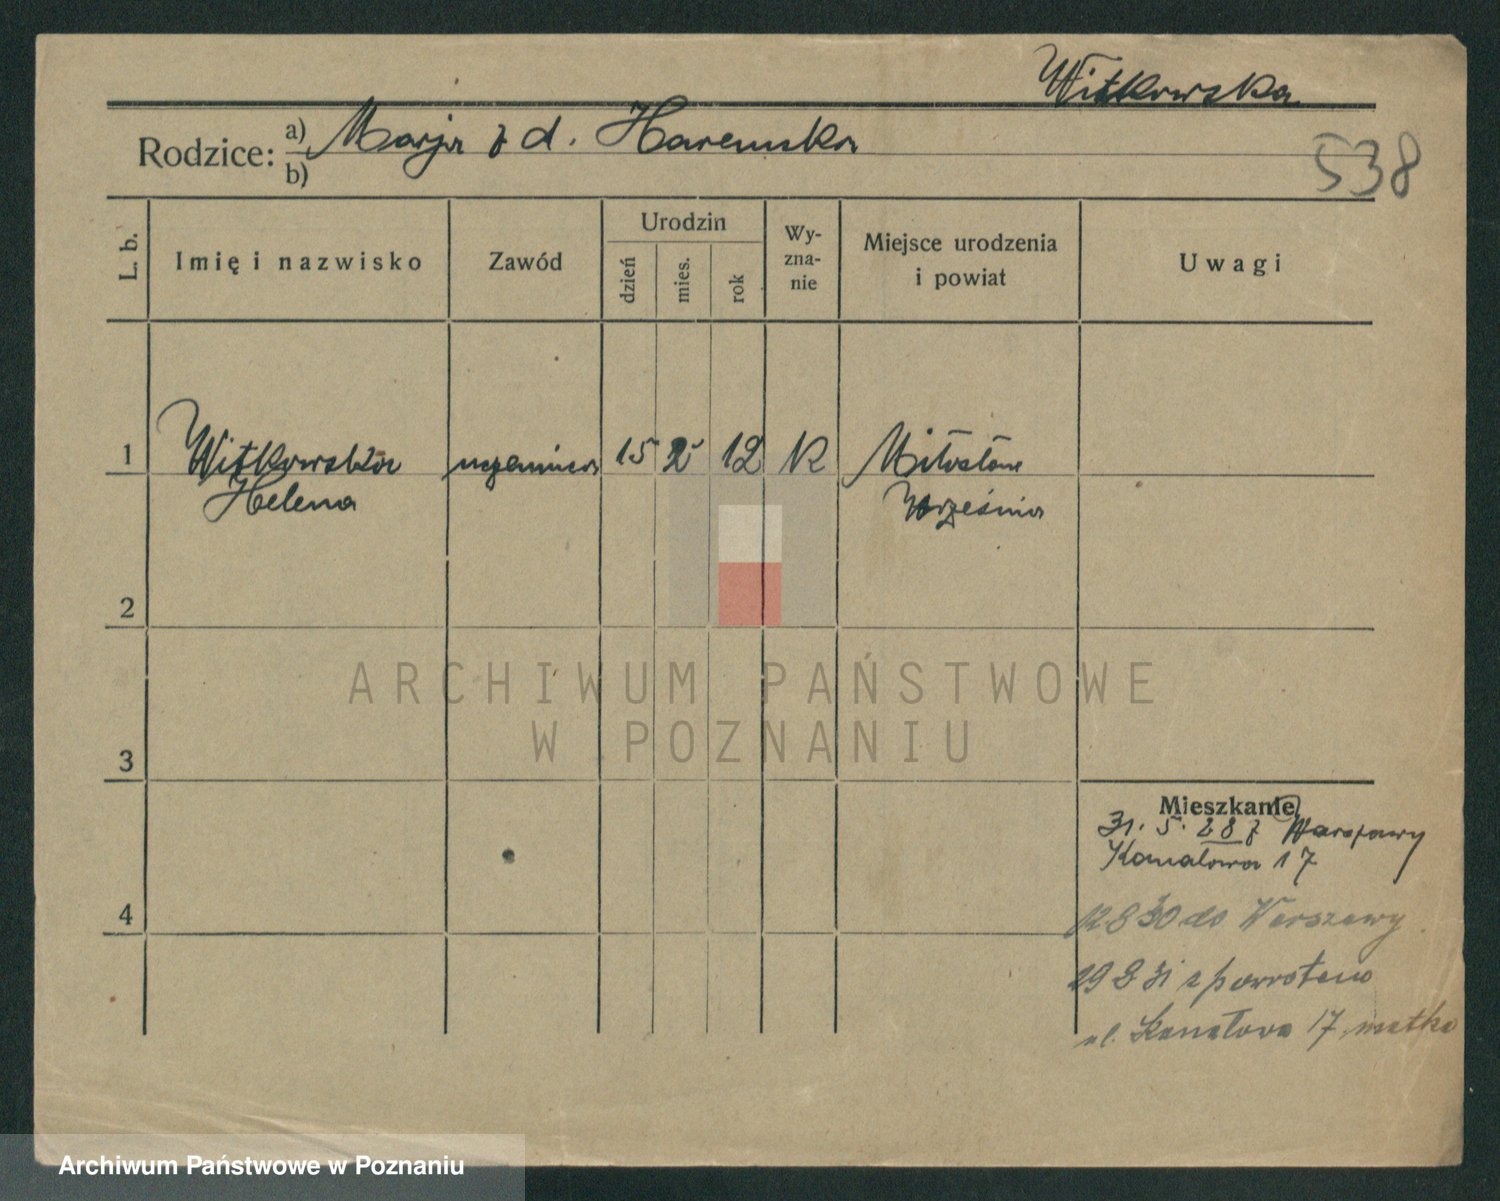 Witkowska
Rodzice: a) Marja z d. Haremska
b)
538
L. b.
Imię i nazwisko
Zawód
Urodzin
dzień
mies.
rok
Wy-
zna-
nie
Miejsce urodzenia
i powiat
Uwagi
1 Witkowska uczennica 15 2 12 K Miłosław
Helena Września
2
3
4
Mieszkanie
31. 5. 28 z Warszawy
Kanałowa 17
12 8 30 do Warszawy
29 8 31 z powrotem
ul. Kanałowa 17, matka
ARCHIWUM PAŃSTWOWE
W POZNANIU
Archiwum Państwowe w Poznaniu